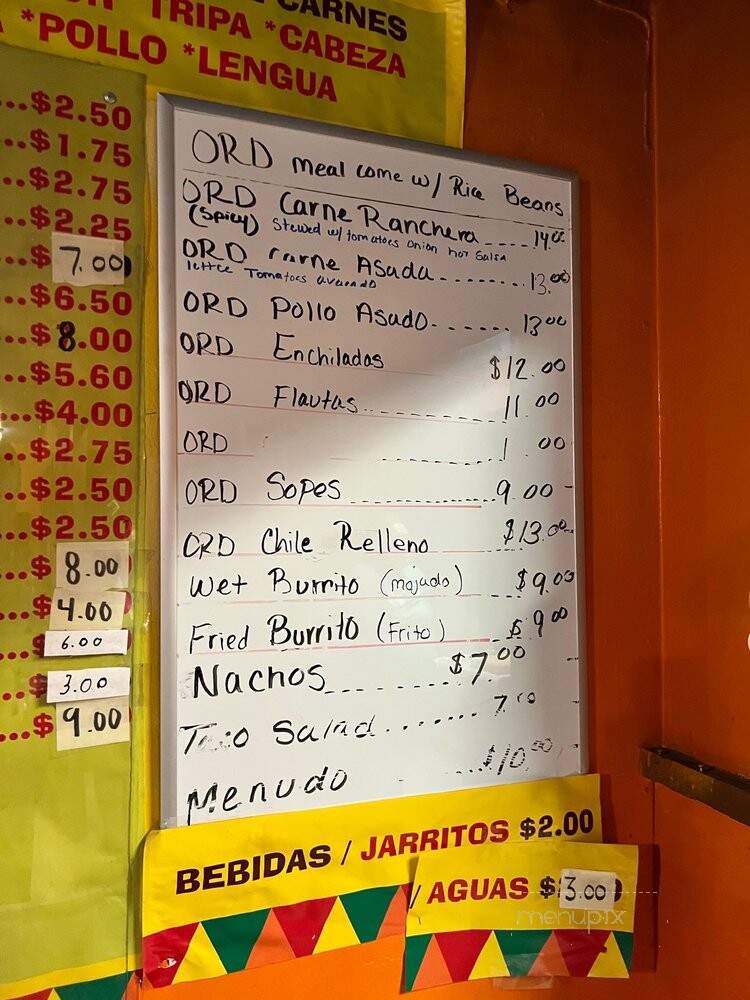 CARNES
TRIPA *CABEZA
*POLLO *LENGUA
...$2.50
...$1.75
...$2.75
...$2.25
...$ 7.00
...$6.50
...$8.00
...$5.60
...$4.00
...$2.75
...$2.50
...$2.50
...$ 8.00
...$ 4.00
6.00
...$ 3.00
...$ 9.00
ORD meal come w/ Rice Beans
ORD Carne Ranchera ---- 14.00
(Spicy) Stewed w/ tomatoes onion hot Salsa
ORD carne Asada -------- 13.00
lettce Tomatoes avocado
ORD Pollo Asado ------ 13 00
ORD Enchiladas $12.00
ORD Flautas ---------- 11.00
ORD
ORD Sopes ............ 9.00
ORD Chile Relleno $13.00
Wet Burrito (mojado) $9.00
Fried Burrito (Frito) $9 00
Nachos ------- $7.00
Taco Salad ....... 7.00
Menudo .... $10.00
BEBIDAS / JARRITOS $2.00
/ AGUAS $ 3.00
menupix